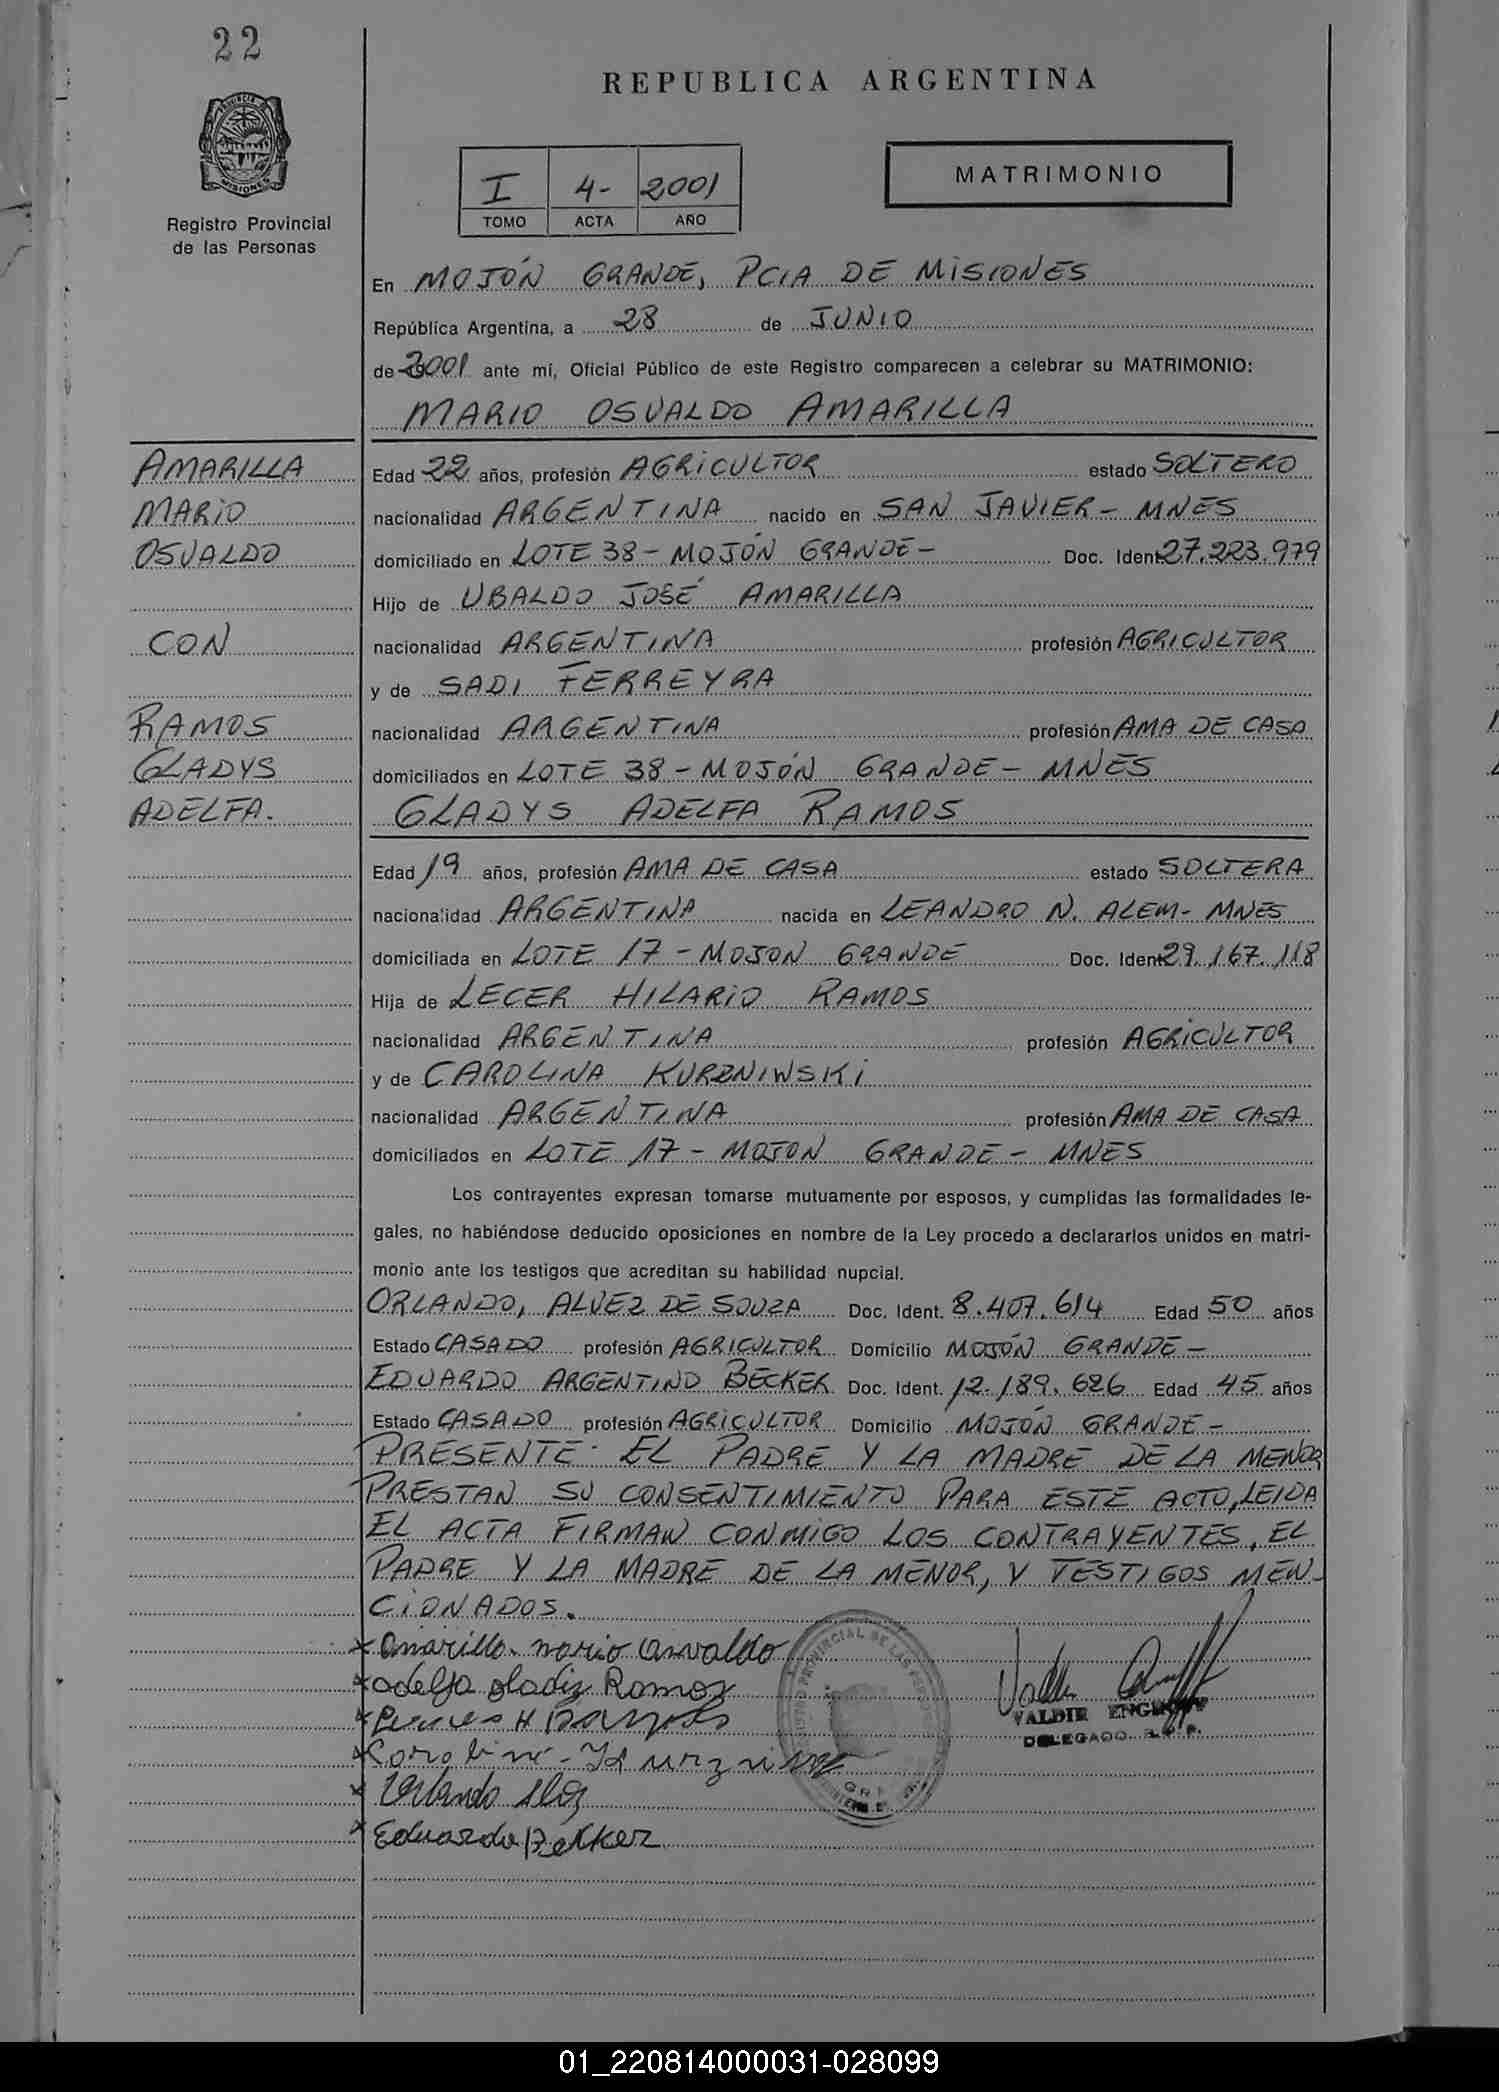 22
REPUBLICA ARGENTINA
PROVINCIA DE
MISIONES
Registro Provincial
de las Personas
I 4- 2001
TOMO ACTA AÑO
MATRIMONIO
En MOJÓN GRANDE, PCIA DE MISIONES
República Argentina, a 28 de JUNIO
de 2001 ante mí, Oficial Público de este Registro comparecen a celebrar su MATRIMONIO:
MARIO OSVALDO AMARILLA
AMARILLA
MARIO
OSVALDO
CON
RAMOS
GLADYS
ADELFA.
Edad 22 años, profesión AGRICULTOR estado SOLTERO
nacionalidad ARGENTINA nacido en SAN JAVIER - MNES
domiciliado en LOTE 38 - MOJÓN GRANDE - Doc. Ident 27.223.979
Hijo de UBALDO JOSÉ AMARILLA
nacionalidad ARGENTINA profesión AGRICULTOR
y de SADI FERREYRA
nacionalidad ARGENTINA profesión AMA DE CASA
domiciliados en LOTE 38 - MOJÓN GRANDE - MNES
GLADYS ADELFA RAMOS
Edad 19 años, profesión AMA DE CASA estado SOLTERA
nacionalidad ARGENTINA nacida en LEANDRO N. ALEM - MNES
domiciliada en LOTE 17 - MOJON GRANDE Doc. Ident 29.167.118
Hija de LECER HILARIO RAMOS
nacionalidad ARGENTINA profesión AGRICULTOR
y de CAROLINA KURZNIWSKI
nacionalidad ARGENTINA profesión AMA DE CASA
domiciliados en LOTE 17 - MOJON GRANDE - MNES
Los contrayentes expresan tomarse mutuamente por esposos, y cumplidas las formalidades le-
gales, no habiéndose deducido oposiciones en nombre de la Ley procedo a declararlos unidos en matri-
monio ante los testigos que acreditan su habilidad nupcial.
ORLANDO, ALVEZ DE SOUZA Doc. Ident. 8.407.614 Edad 50 años
Estado CASADO profesión AGRICULTOR Domicilio MOJÓN GRANDE -
EDUARDO ARGENTINO BECKER Doc. Ident. 12.189.626 Edad 45 años
Estado CASADO profesión AGRICULTOR Domicilio MOJÓN GRANDE -
PRESENTE: EL PADRE Y LA MADRE DE LA MENOR
PRESTAN SU CONSENTIMIENTO PARA ESTE ACTO, LEIDA
EL ACTA FIRMAN CONMIGO LOS CONTRAYENTES, EL
PADRE Y LA MADRE DE LA MENOR, Y TESTIGOS MEN-
CIONADOS.
Amarilla mario Osvaldo
adelfa gladiz Ramoz
Eduardo Becker
VALDIR
DELEGADO R.P.P.
01_220814000031-028099